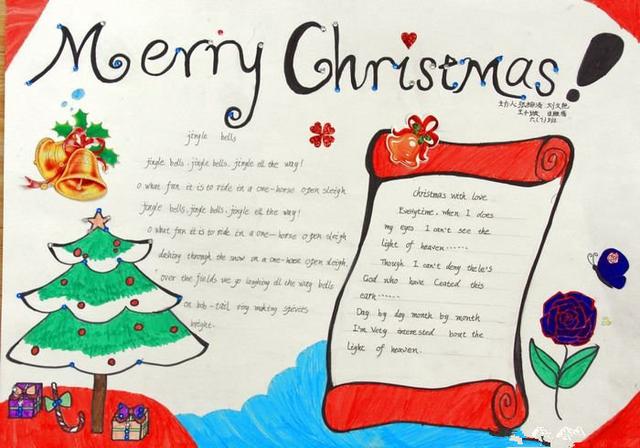 Merry Christmas!
六(1)班
jingle bells
jingle bells, jingle bells, jingle all the way!
o what fun it is to ride in a one-horse open sleigh
jingle bells, jingle bells, jingle all the way!
o what fun it is to ride in a one-horse open sleigh
dashing through the snow in a one-horse open sleigh,
over the fields we go laughing all the way bells
on bob-tail ring making spirits
bright.
Christmas with love
Everytime, when I does
my eyes I can't see the
light of heaven......
Though I can't deny
God who have Ceated this
earn......
Day by day month by month
I'm Very interested bout the
light of heaven.